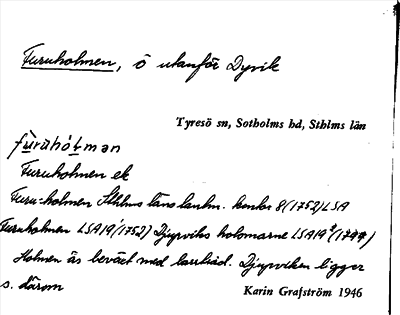 Furuholmen, ö utanför Dyvik
Tyresö sn, Sotholms hd, Sthlms län
Furuholmen ek
Furu-holmen Sthlms läns lantm. kontor 8 (1752) LSA
Furuholmen LSA 19 (1752) Djupviks holmarne LSA 19
Holmen är beväxt med barrträd. Djupviken ligger
s. därom
Karin Grafström 1946